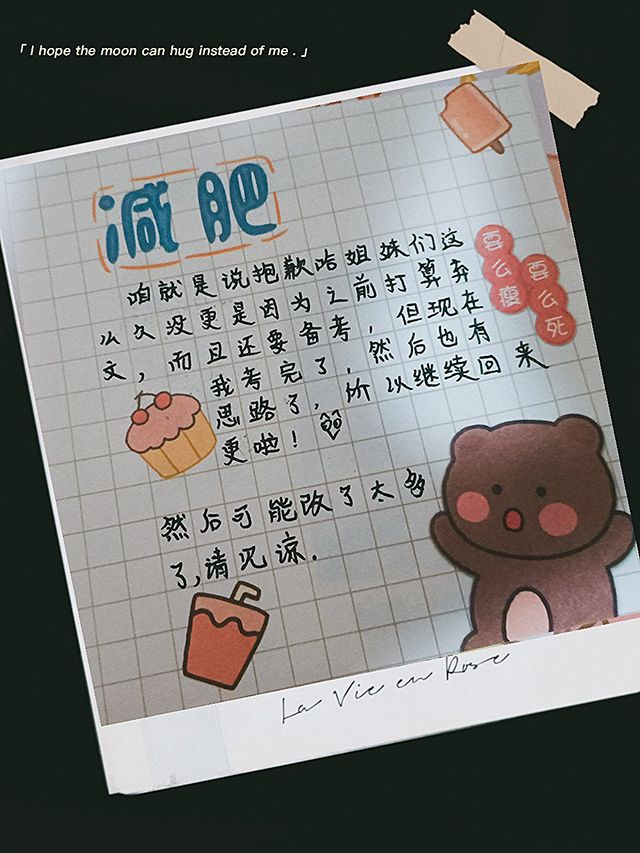 「 I hope the moon can hug instead of me . 」
减肥
要么瘦
要么死
咱就是说抱歉哈姐妹们这
么久没更是因为之前打算弃
文，而且还要备考，但现在
我考完了，然后也有
思路了，所以继续回来
更啦！
然后可能改了太多
了,请见谅.
La Vie en Rose